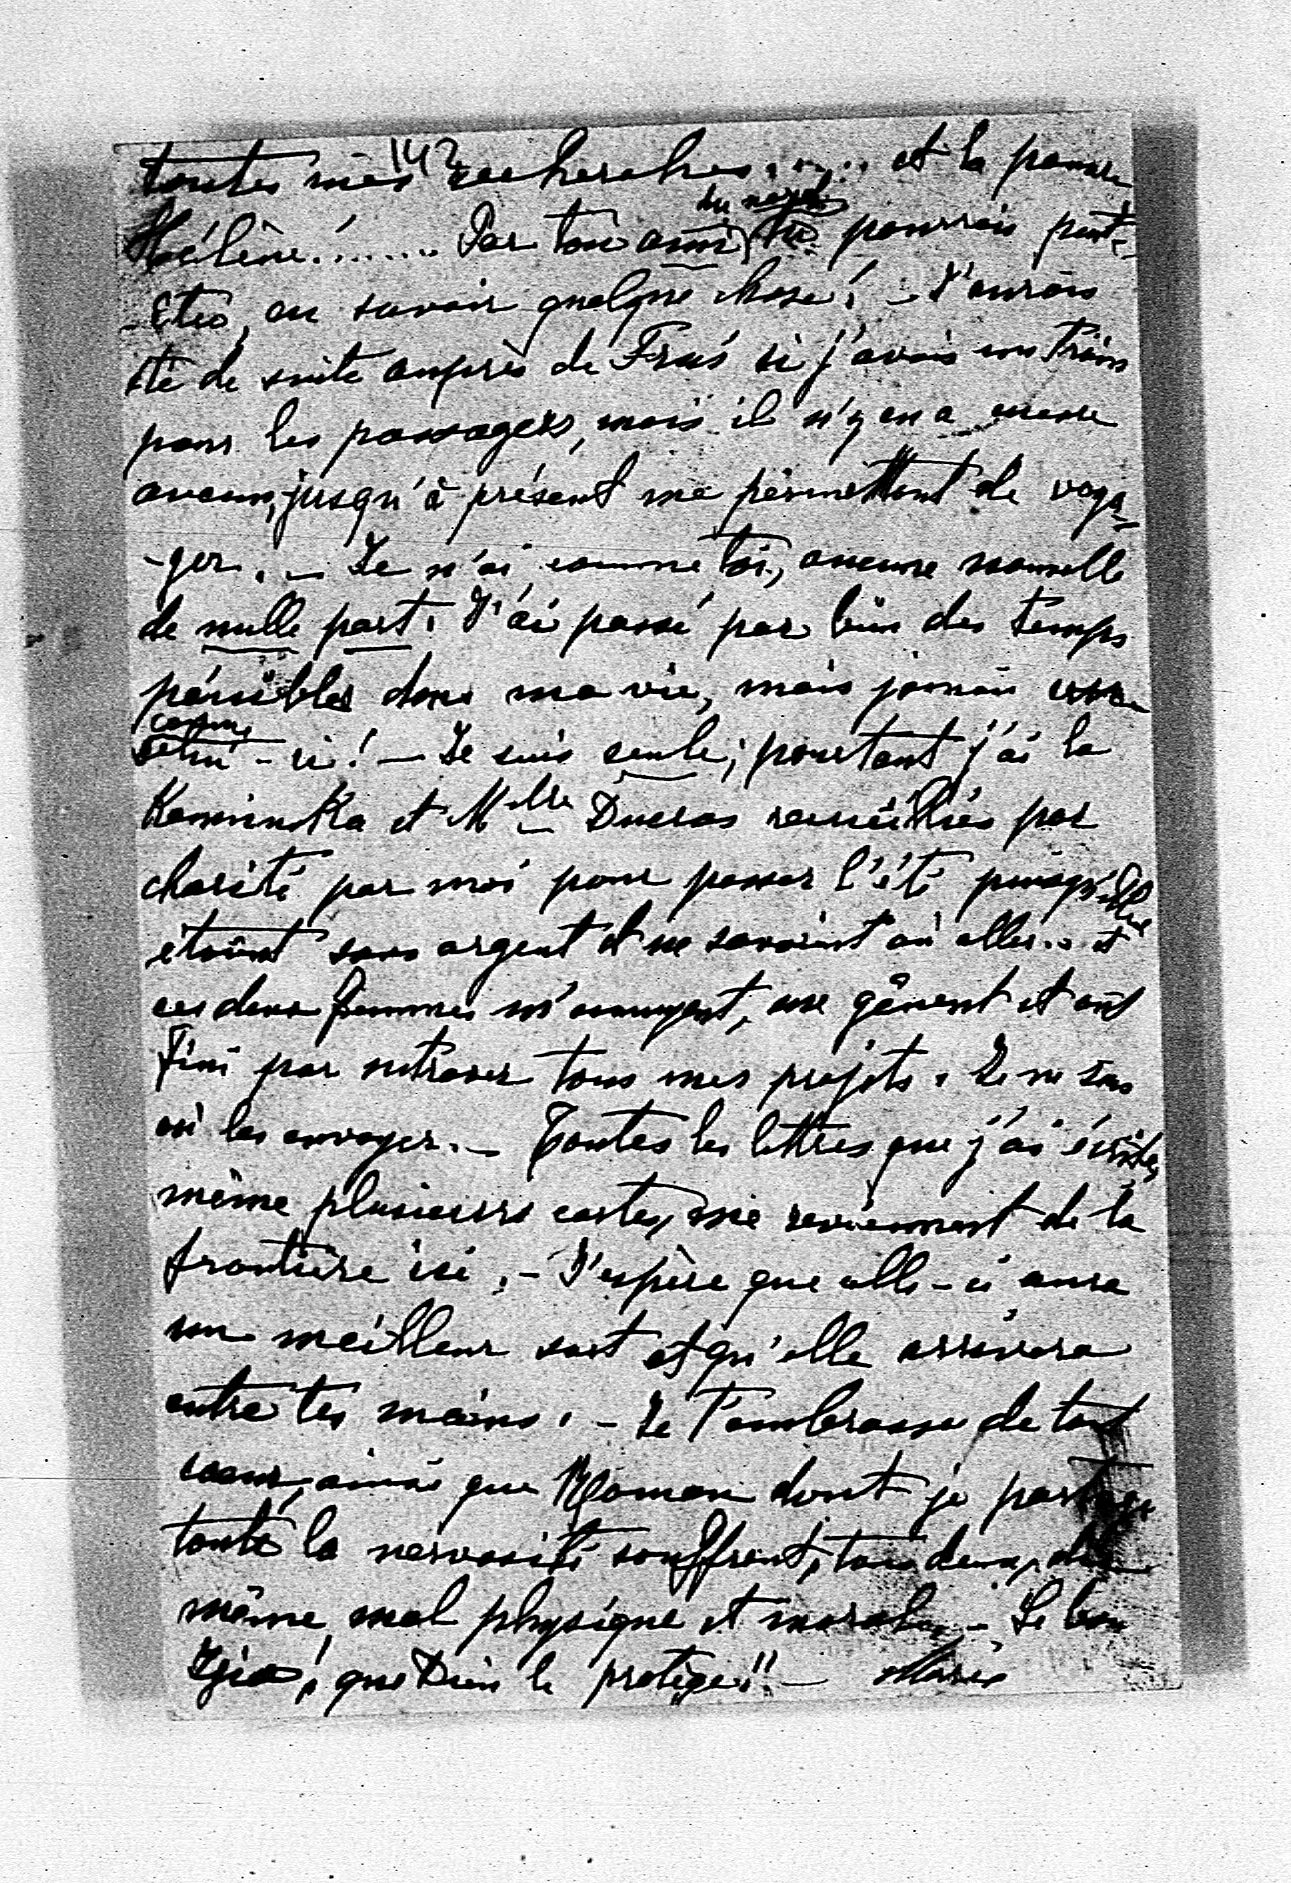 142
toutes mes recherches..... et la pauvre
Hélène!....... Par ton ami du nord tu pourrais peut-
-être, en savoir quelque chose! - J'aurais
été de suite auprès de Frus' si j'avais un train
pour les passagers, mais il n'y en a encore
aucun, jusqu'à présent me permettant de voya-
-ger. - Je n'ai, comme toi, aucune nouvelle
de nulle part. J'ai passé par bien des temps
pénibles dans ma vie, mais jamais
comme
celui-ci! - Je suis seule; pourtant j'ai la
Kaminska et Melle Ducros recueillies par
charité par moi pour passer l'été puisqu'elles
étaient sans argent et ne savaient où aller... et
ces deux femmes m'ennuyent, me gênent et ont
fini par entraver tous mes projets. Je ne sais
où les envoyer. - Toutes les lettres que j'ai écrites,
même plusieurs cartes, me reviennent de la
frontière ici. - J'espère que celle-ci aura
un meilleur sort et qu'elle arrivera
entre tes mains. - Je t'embrasse de tout
coeur, ainsi que Roman dont je partage
toute la nervosité souffrant, tous deux, du
même mal physique et moral. - Le bon
que Dieu le protège!! - Marie